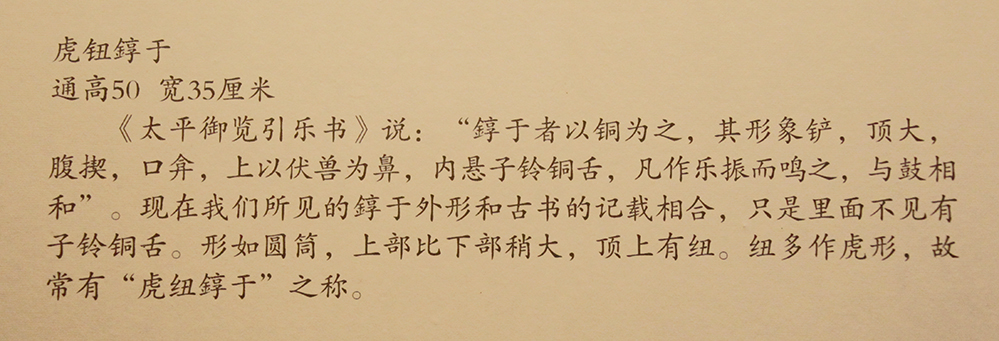 虎钮錞于
通高50 宽35厘米
《太平御览引乐书》说：“錞于者以铜为之，其形象铲，顶大，
腹揳，口弇，上以伏兽为鼻，内悬子铃铜舌，凡作乐振而鸣之，与鼓相
和”。现在我们所见的錞于外形和古书的记载相合，只是里面不见有
子铃铜舌。形如圆筒，上部比下部稍大，顶上有纽。纽多作虎形，故
常有“虎纽錞于”之称。